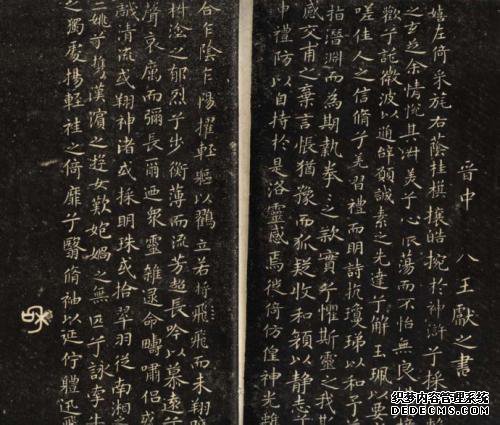 晉中 八王獻之書
嬉左倚采旄右蔭桂旗攘皓捥於神滸兮採
之玄芝余情悅其淑美兮心振蕩而不怡無良
歡兮託微波以通辭願誠素之先達兮解玉珮以要
嗟佳人之信脩兮羌習禮而明詩抗瓊珶以和予
指潛淵而為期執拳之款實兮懼斯靈之我
感交甫之棄言悵猶豫而狐疑收和顏以靜志兮
申禮防以自持於是洛靈感焉徙倚仿偟神光離
合乍陰乍陽擢輕軀以鶴立若將飛而未翔
椒塗之郁烈兮步衡薄而流芳超長吟以慕遠
聲哀厲而彌長爾迺眾靈雜遝命疇嘯侶或
戲清流或翔神渚或採明珠或拾翠羽從南湘之
二姚兮攜漢濱之遊女歎匏媧之無匹兮詠牽牛
之獨處揚輕袿之倚靡兮翳脩袖以延佇體迅飛
织梦内容管理系统
DEDECMS.COM